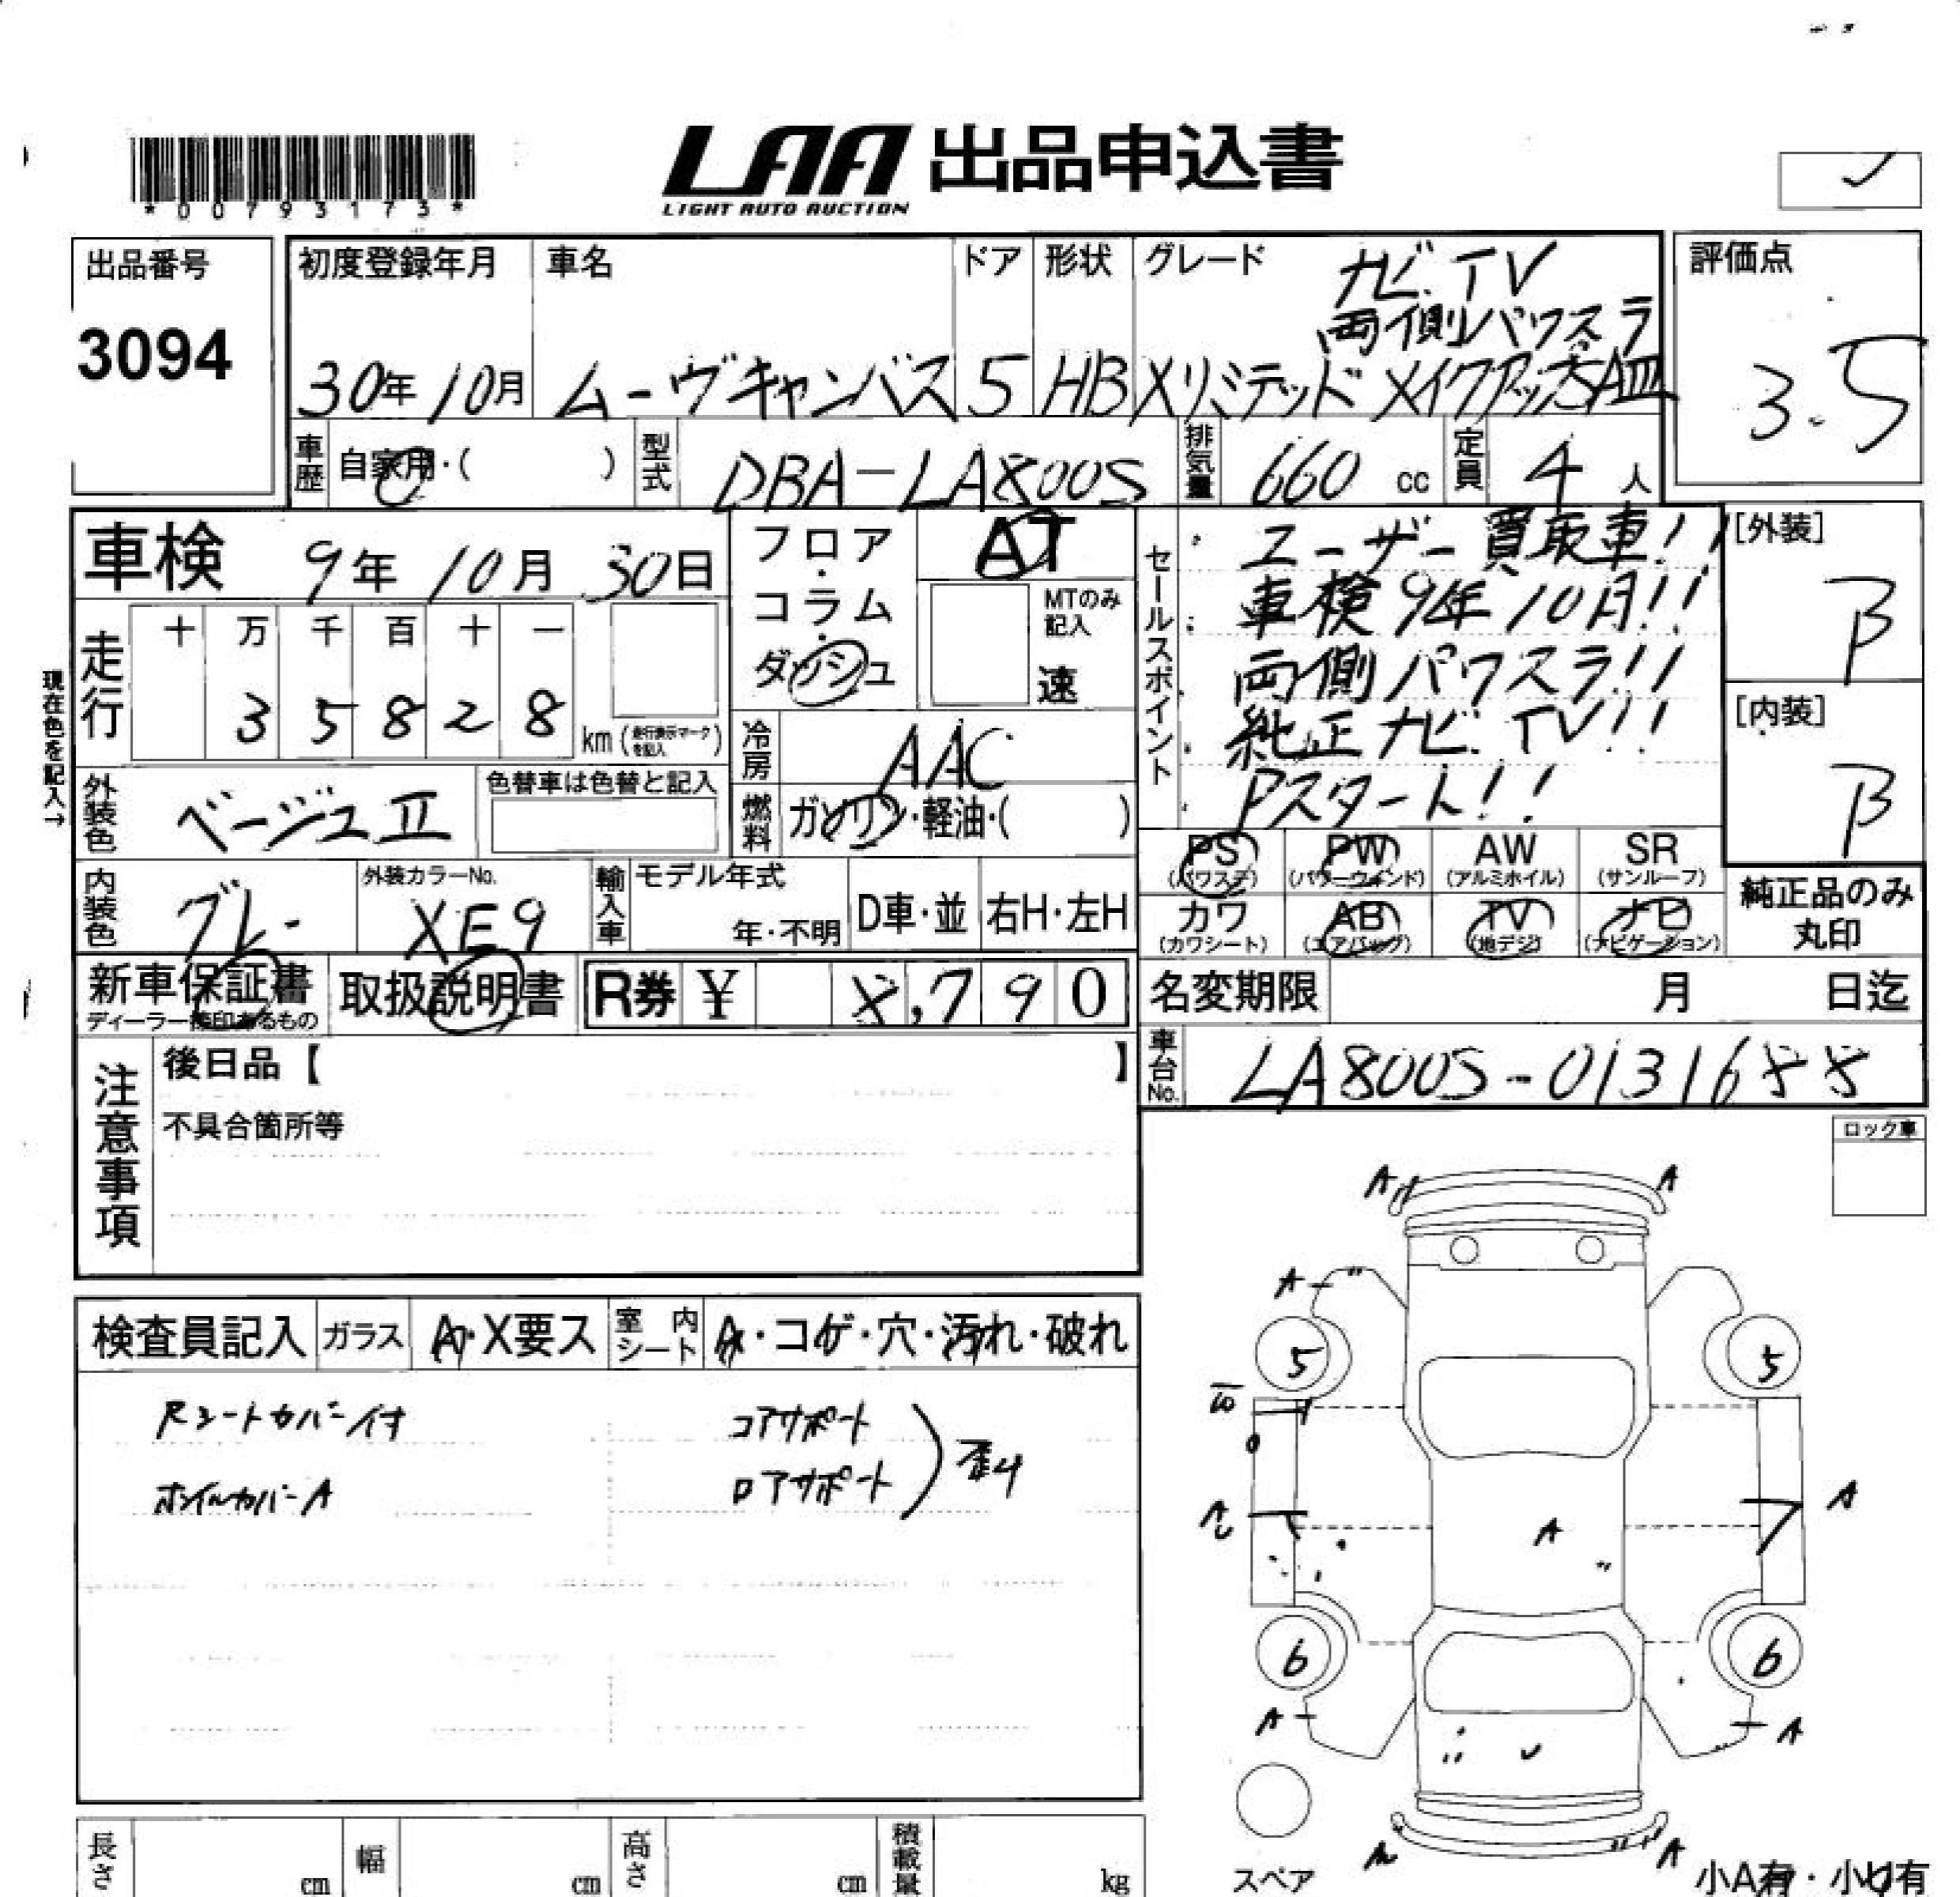 *00793173*
LAA 出品申込書
LIGHT AUTO AUCTION
出品番号
3094
初度登録年月
30年10月
車名
ムーヴキャンバス
ドア
5
形状
HB
グレード
ナビ.TV
両側パワスラ
Xリミテッド メイクアップ SAⅢ
評価点
3.5
車歴 自家用・( )
型式 DBA-LA800S
排気量 660 cc
定員 4 人
車検 9年 10月 30日
フロア・コラム・ダッシュ
AT
MTのみ記入
速
現在色を記入→
走行
十 万 千 百 十 一
3 5 8 2 8
km (走行表示マークを記入)
冷房 AAC
外装色 ベージュⅡ
色替車は色替と記入
燃料 ガソリン・軽油・( )
内装色 グレー
外装カラーNo.
XE9
輸入車
モデル年式
年・不明
D車・並
右H・左H
セールスポイント
ユーザー買取車!!
車検9年10月!!
両側パワスラ!!
純正ナビ.TV!!
Pスタート!!
[外装]
B
[内装]
B
PS (パワステ)
PW (パワーウィンド)
AW (アルミホイル)
SR (サンルーフ)
カワ (カワシート)
AB (エアバッグ)
TV (地デジ)
ナビ (ナビゲーション)
純正品のみ丸印
新車保証書
ディーラー捺印あるもの
取扱説明書
R券 ¥ 8,790
名変期限 月 日迄
車台No. LA800S-0131688
注意事項
後日品【 】
不具合箇所等
ロック車
検査員記入
ガラス A・X要ス
室内シート A・コゲ・穴・汚れ・破れ
Rシートカバー付
ホイルカバーA
コアサポート
ロアサポート
歪み
A A
A
5 5
A
A
A
6 6
A A
A
スペア
小A有・小U有
長さ cm
幅 cm
高さ cm
積載量 kg